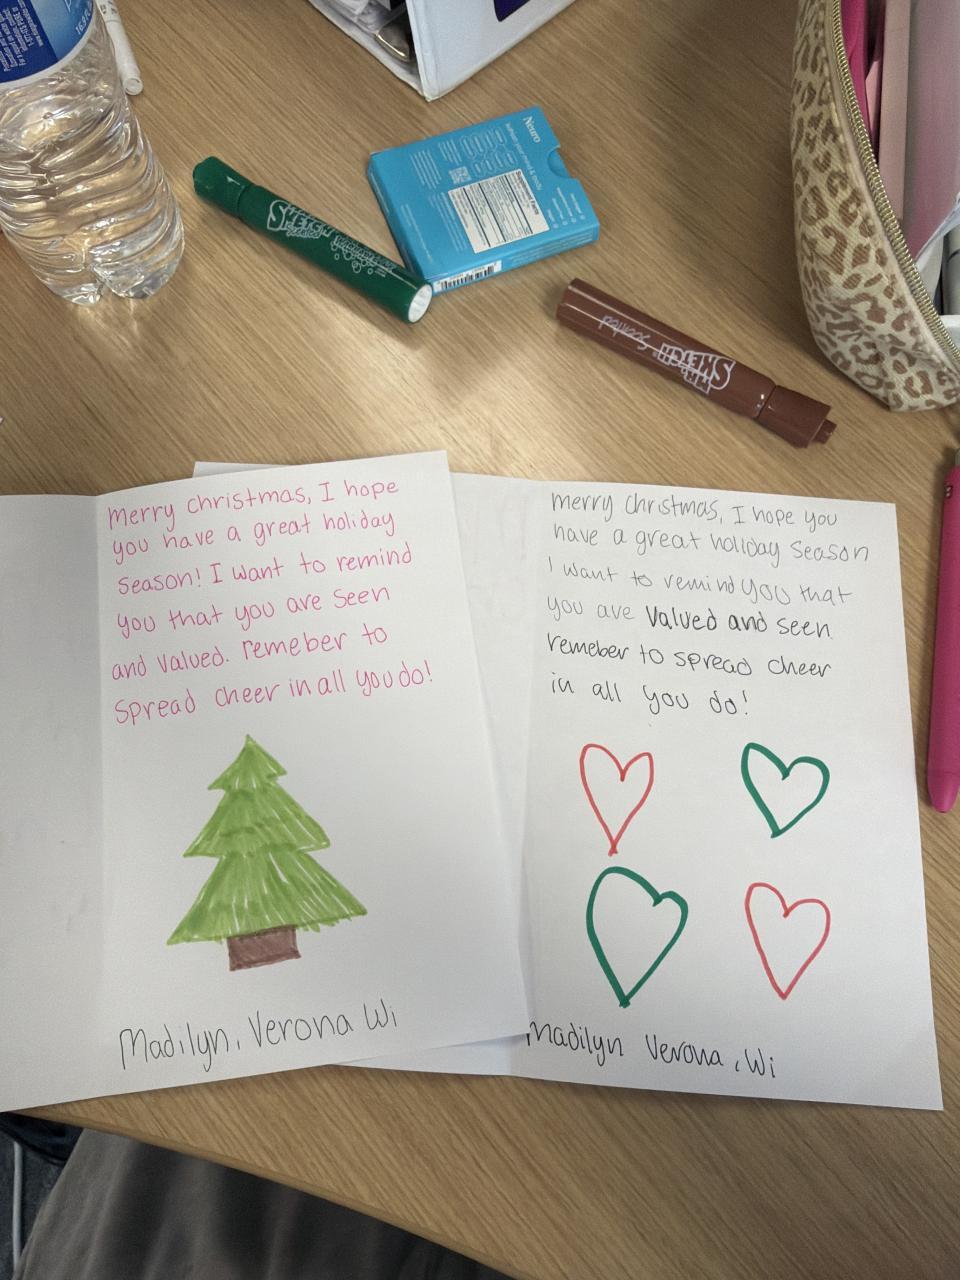 Neuro
Supplement Facts
SKETCH
Scented
MR. SKETCH
Scented
merry christmas, I hope
you have a great holiday
season! I want to remind
you that you are seen
and valued. remeber to
spread cheer in all you do!
Madilyn, Verona Wi
merry christmas, I hope you
have a great holiday season
I want to remind you that
you are valued and seen
remeber to spread cheer
in all you do!
Madilyn Verona, Wi